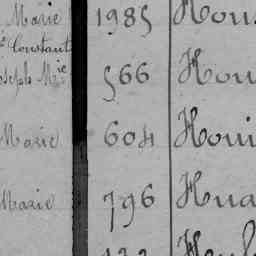 Marie 1985 Hous
Constant
Joseph Mie 566 Hou
Marie 604 Houi
Marie 796 Hua